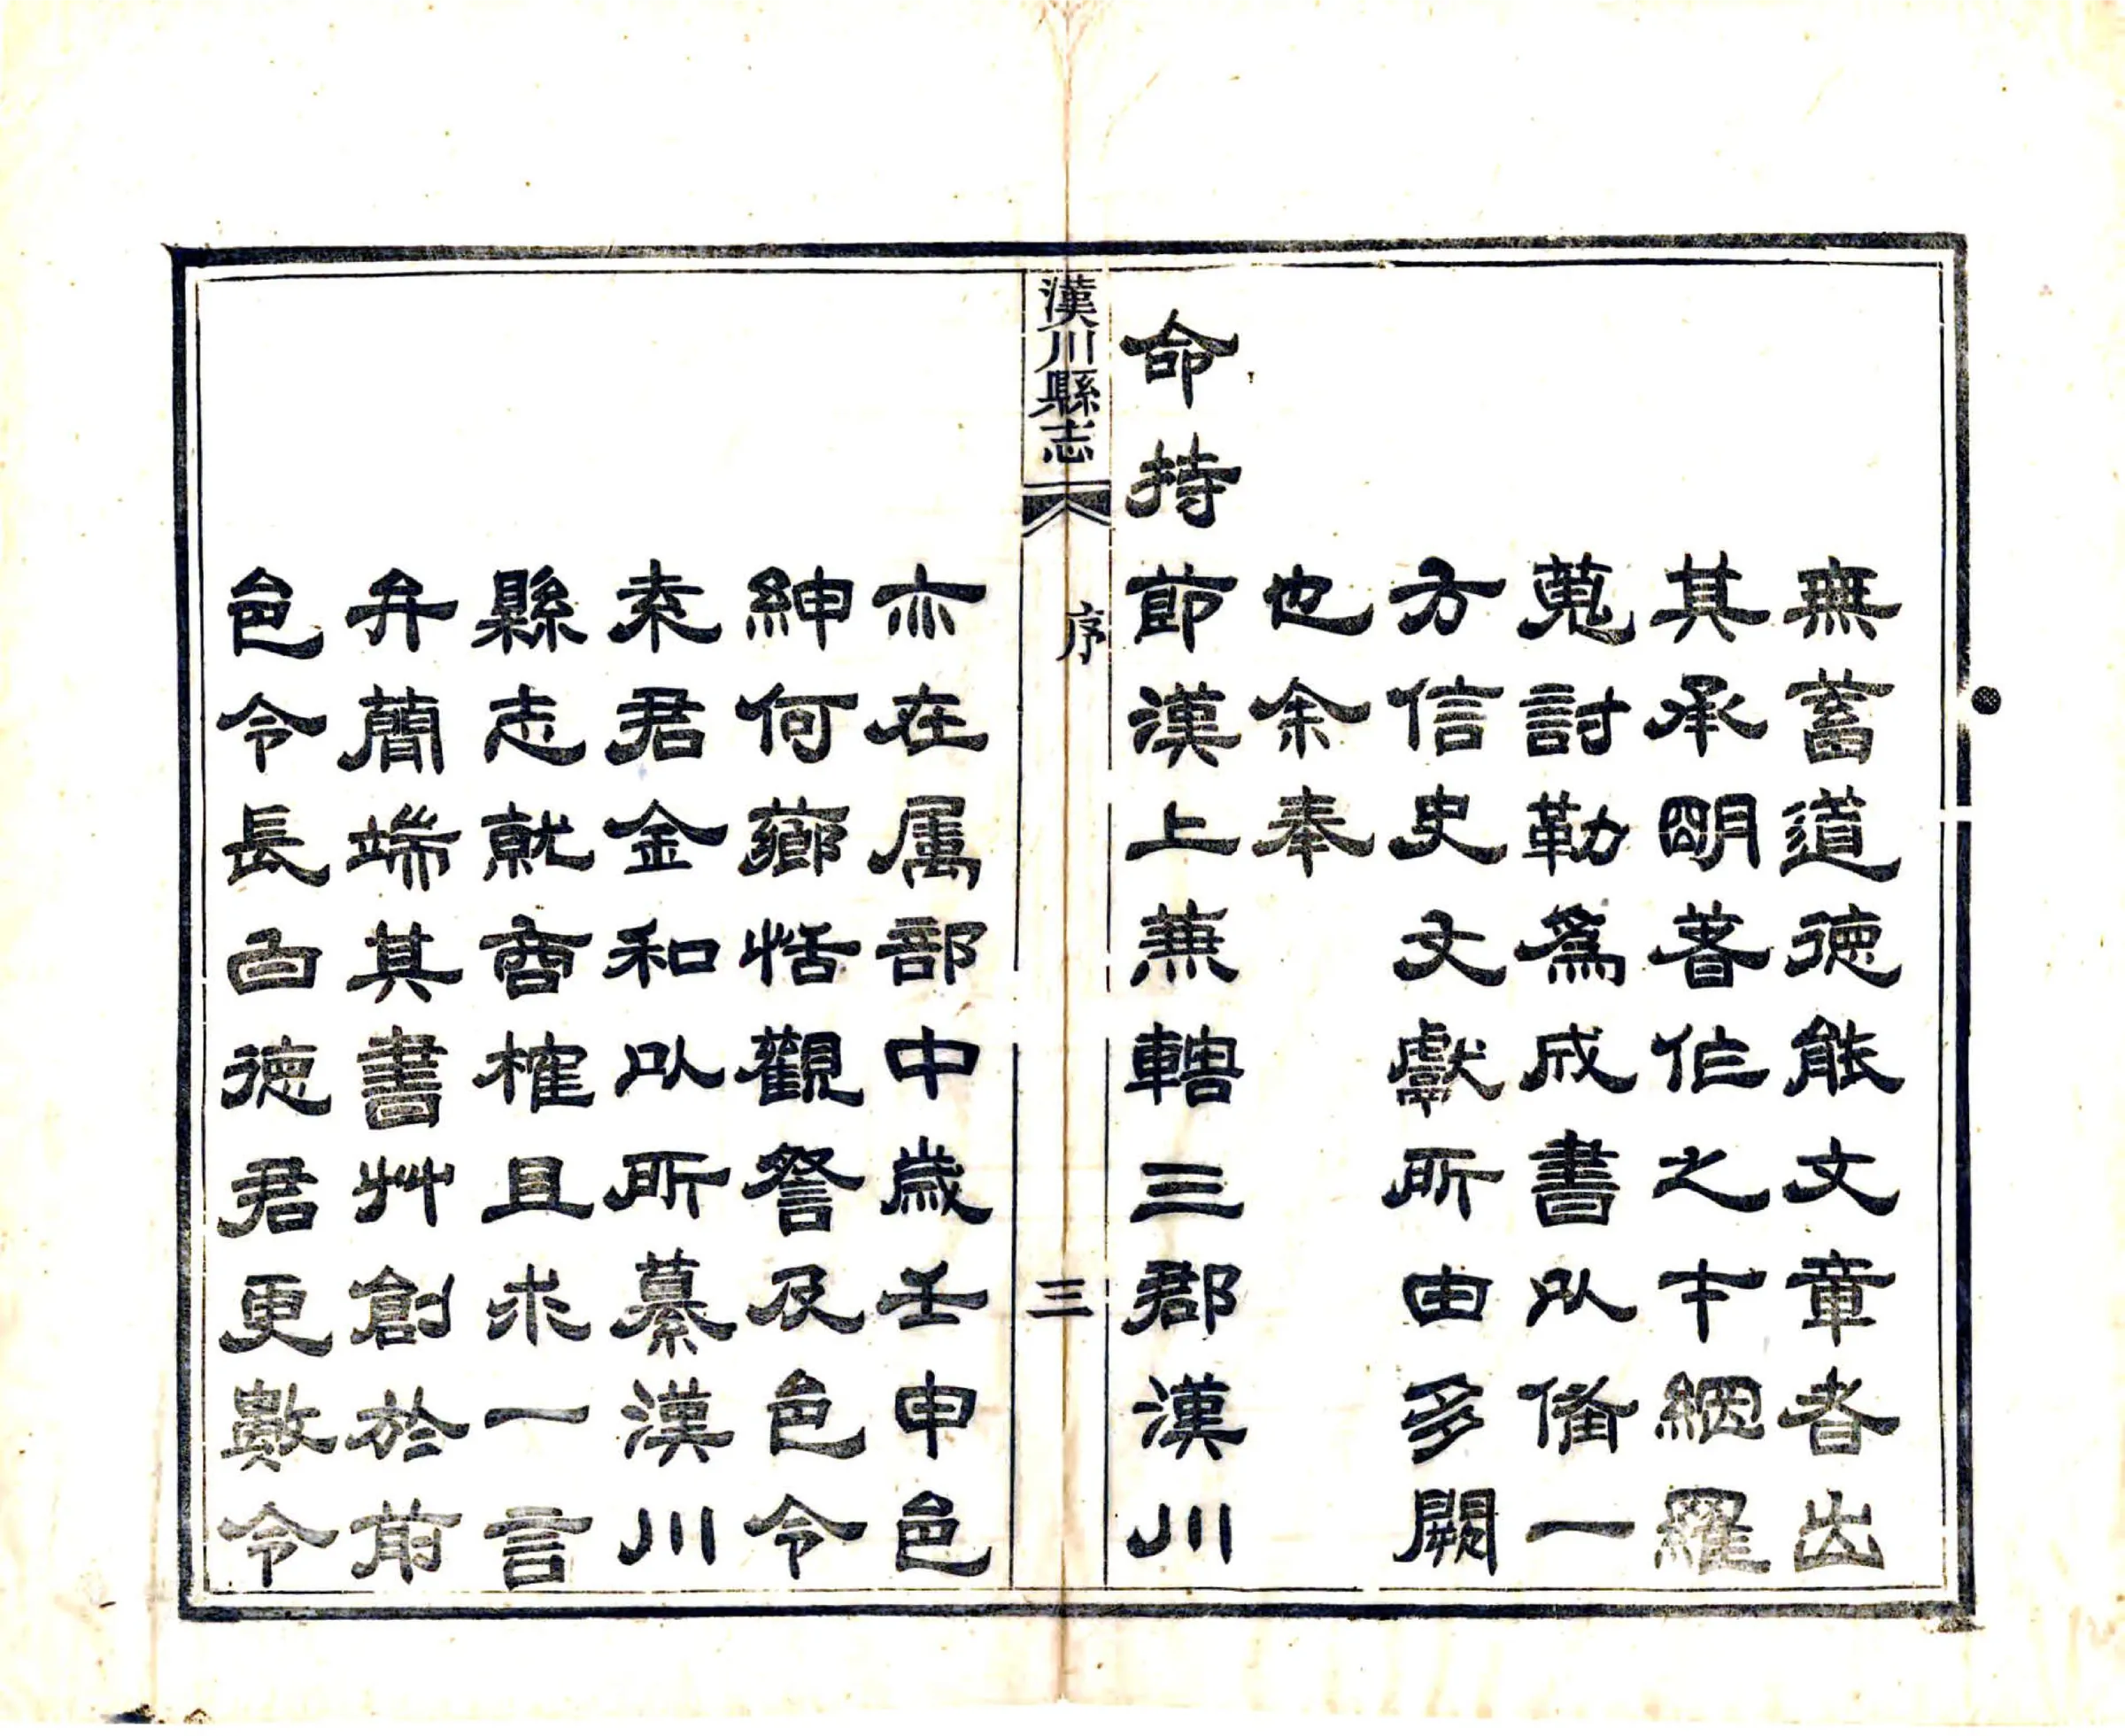 無蓄道徳能文章者出
其承明著作之才網羅
蒐討勒爲成書以備一
方信史文獻所由多闕
也余奉
命持節漢上兼轄三郡漢川
漢川縣志
序
三
亦在属部中歲壬申邑
紳何薌恬觀詧及邑令
袁君金和以所纂漢川
縣志就商榷且求一言
弁簡端其書艸創於前
邑令長白徳君更數令